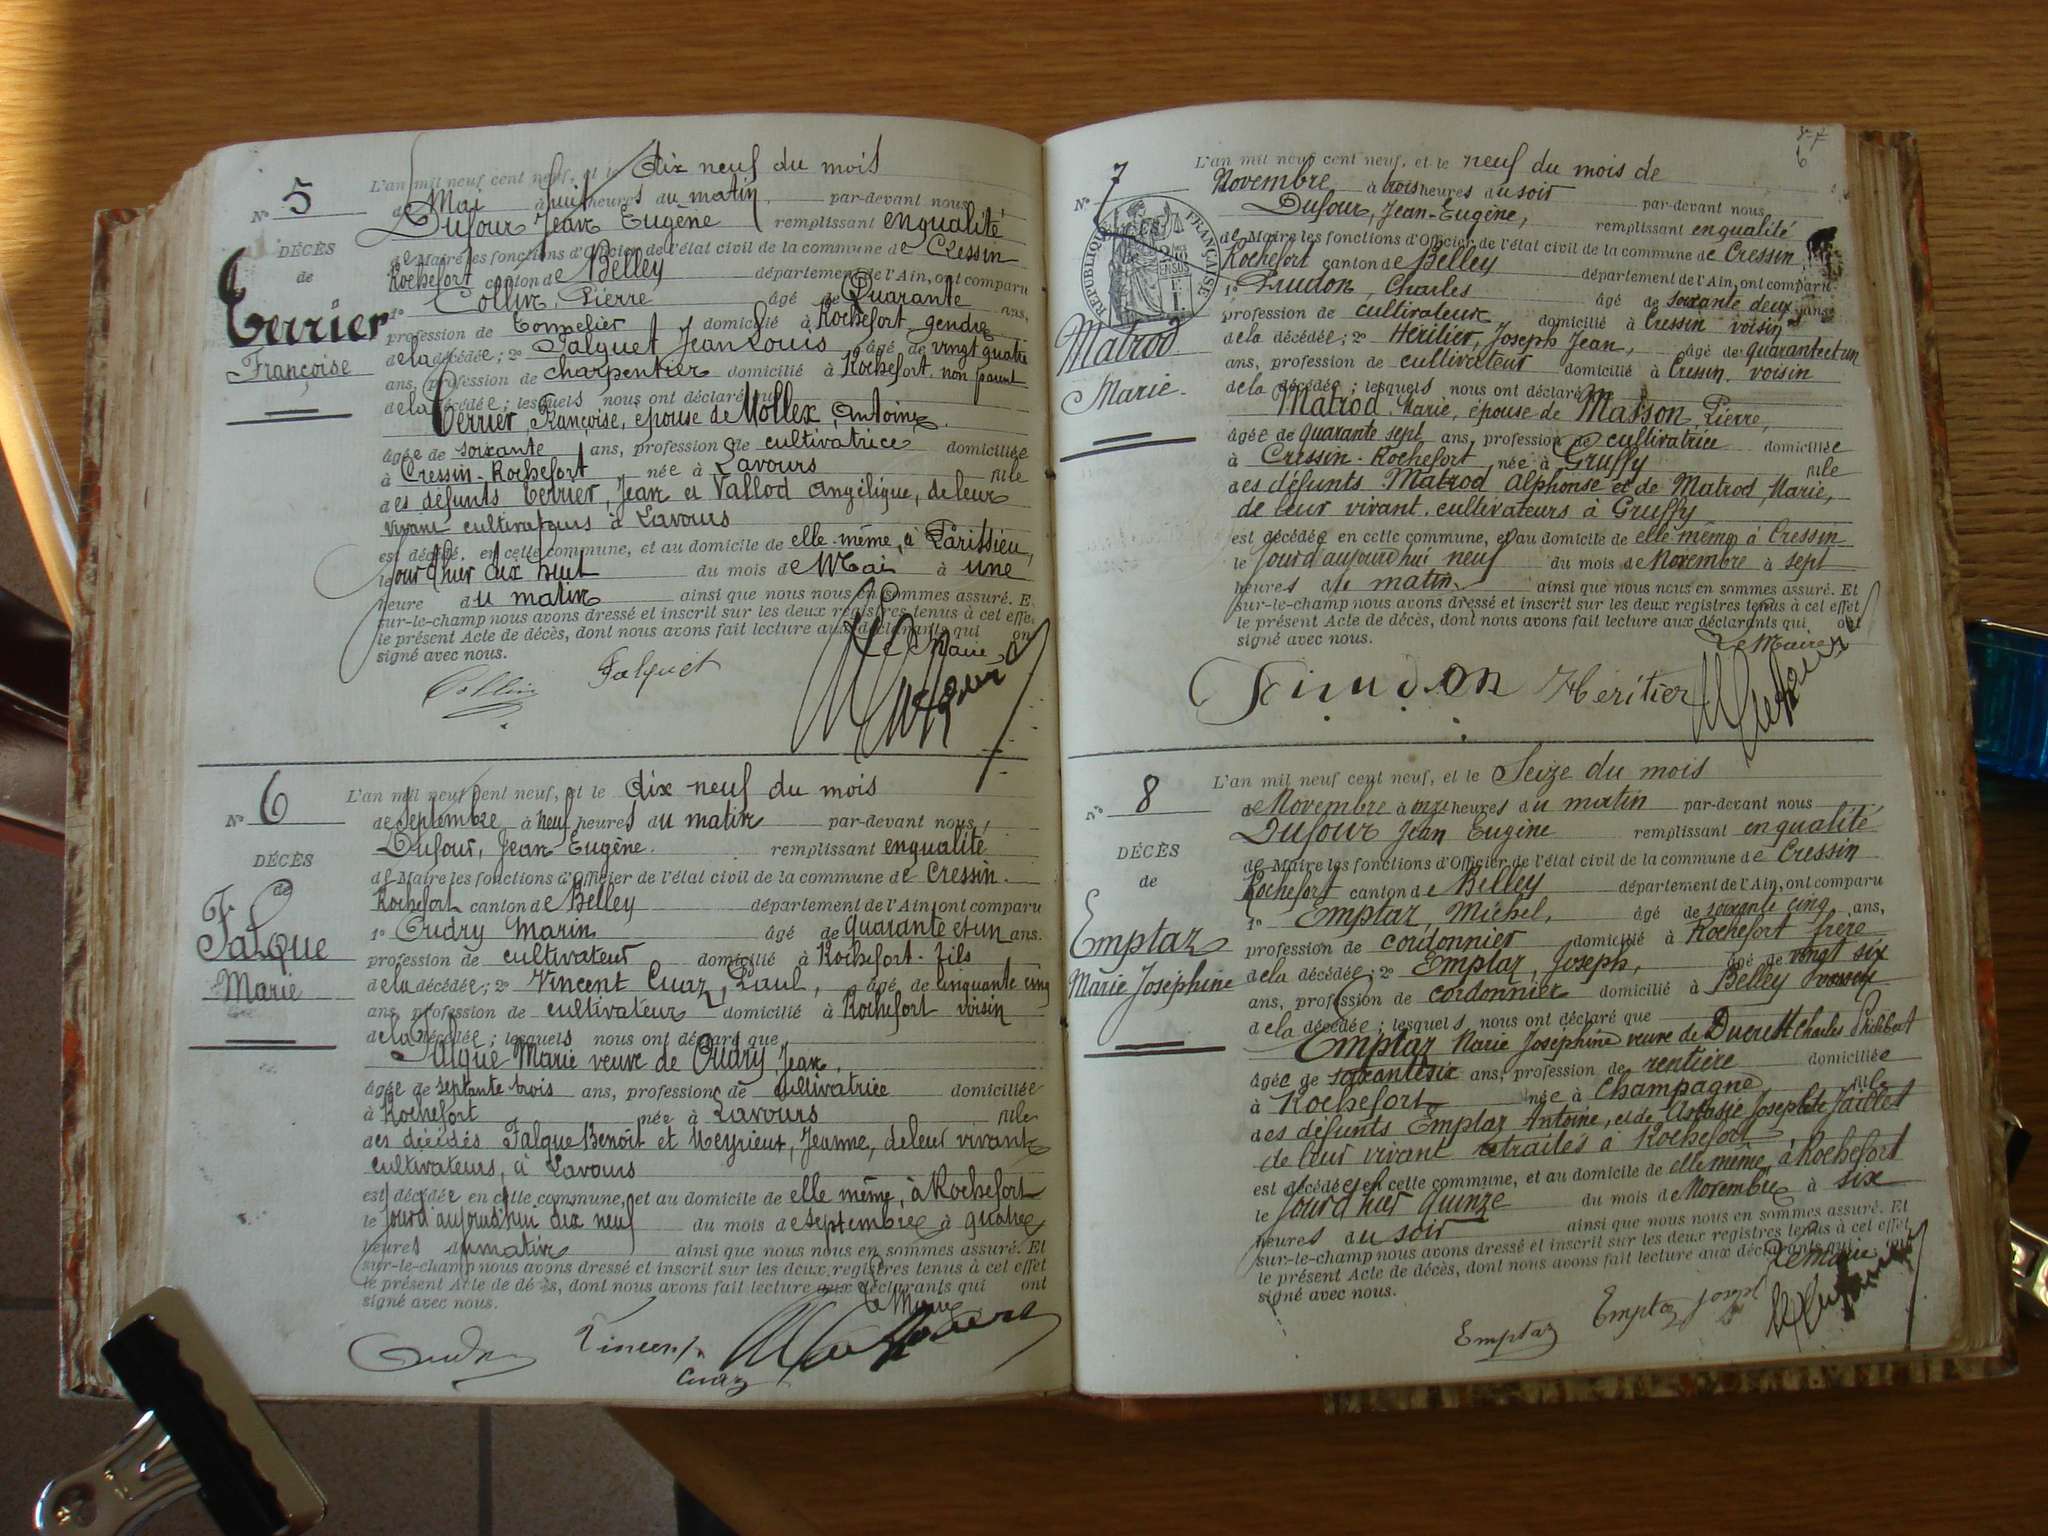 N° 5
DÉCÈS
de
Terrier
Françoise
L'an mil neuf cent neuf, et le dix neuf du mois
de Mai à huit heures du matin par-devant nous
Dufour Jean Eugène remplissant en qualité
de Maire les fonctions d'Officier de l'état civil de la commune de Cressin
Rochefort canton de Belley département de l'Ain, ont comparu
1° Collin, Pierre âgé de Quarante ans,
profession de tonnelier domicilié à Rochefort gendre
de la décédée; 2° Falquet Jean Louis âgé de vingt quatre
ans, profession de charpentier domicilié à Rochefort non parent
de la décédée; lesquels nous ont déclaré que
Terrier, Françoise, epouse de Mollex, Antoine,
âgée de soixante ans, profession de cultivatrice domiciliée
à Cressin-Rochefort née à Lavours fille
des défunts Terrier, Jean et Vallod Angélique, de leur
vivant cultivateurs à Lavours
est décédé. en cette commune, et au domicile de elle même, à Parissieu,
le jour d'hier dix huit du mois de Mai à une
heure du matin ainsi que nous nous en sommes assuré. Et
sur-le-champ nous avons dressé et inscrit sur les deux registres tenus à cet effet
le présent Acte de décès, dont nous avons fait lecture aux déclarants qui ont
signé avec nous.
Le Maire
Collin Falquet
N° 6
DÉCÈS
de
Falque
Marie
L'an mil neuf cent neuf, et le dix neuf du mois
de Septembre à neuf heures du matin par-devant nous,
Dufour, Jean Eugène. remplissant en qualité
de Maire les fonctions d'Officier de l'état civil de la commune de Cressin
Rochefort canton de Belley département de l'Ain, ont comparu
1° Cudry Marin âgé de Quarante et un ans.
profession de cultivateur domicilié à Rochefort. fils
de la décédée; 2° Vincent Cuaz, Paul, âgé de cinquante cinq
ans, profession de cultivateur domicilié à Rochefort voisin
de la décédée; lesquels nous ont déclaré que
Falque Marie veuve de Cudry Jean,
âgée de septante trois ans, profession de cultivatrice domiciliée
à Rochefort née à Lavours fille
des décédés Falque Benoît et Meyrieux, Jeanne, de leur vivant
cultivateurs, à Lavours
est décédée en cette commune, et au domicile de elle même, à Rochefort
le jour d'aujourd'hui dix neuf du mois de septembre à quatre
heures du matin ainsi que nous nous en sommes assuré. Et
sur-le-champ nous avons dressé et inscrit sur les deux registres tenus à cet effet
le présent Acte de décès, dont nous avons fait lecture aux déclarants qui ont
signé avec nous.
Le Maire
Vincent
Cuaz
6
N° 7
RÉPUBLIQUE FRANÇAISE
Matrod
Marie.
L'an mil neuf cent neuf, et le neuf du mois de
Novembre à trois heures du soir
Dufour, Jean-Eugène, par-devant nous
remplissant en qualité
de Maire les fonctions d'Officier de l'état civil de la commune de Cressin
Rochefort canton de Belley département de l'Ain, ont comparu
1° Prudon, Charles âgé de soixante deux ans
profession de cultivateur domicilié à Cressin voisin
de la décédée; 2° Héritier, Joseph Jean, âgé de quarante et un
ans, profession de cultivateur domicilié à Cressin. voisin
de la décédée; lesquels nous ont déclaré que
Matrod Marie, épouse de Masson, Pierre,
âgée de quarante sept ans, profession de cultivatrice domiciliée
à Cressin-Rochefort, née à Gruffy fille
des défunts Matrod Alphonse et de Matrod, Marie,
de leur vivant. cultivateurs à Gruffy
est décédée en cette commune, et au domicile de elle même à Cressin
le jour d'aujourd'hui neuf du mois de Novembre à sept
heures du matin. ainsi que nous nous en sommes assuré. Et
sur-le-champ nous avons dressé et inscrit sur les deux registres tenus à cet effet
le présent Acte de décès, dont nous avons fait lecture aux déclarants qui ont
signé avec nous.
Le Maire
Héritier
N° 8
DÉCÈS
de
Emptaz
Marie Joséphine
L'an mil neuf cent neuf, et le Seize du mois
de Novembre à onze heures du matin par-devant nous
Dufour Jean Eugène remplissant en qualité
de Maire les fonctions d'Officier de l'état civil de la commune de Cressin
Rochefort canton de Belley département de l'Ain, ont comparu
1° Emptaz, Michel, âgé de soixante cinq ans,
profession de cordonnier domicilié à Rochefort frère
de la décédée; 2° Emptaz, Joseph, âgé de vingt six
ans, profession de cordonnier domicilié à Belley
de la décédée; lesquels nous ont déclaré que
Emptaz Marie Joséphine veuve de Ducrest Charles Philibert
âgée de soixante six ans, profession de rentière domiciliée
à Rochefort née à Champagne fille
des défunts Emptaz Antoine, et de Jaillet
de leur vivant retraités à Rochefort
est décédée en cette commune, et au domicile de elle même, à Rochefort
le jour d'hier quinze du mois de Novembre à six
heures du soir ainsi que nous nous en sommes assuré. Et
sur-le-champ nous avons dressé et inscrit sur les deux registres tenus à cet effet
le présent Acte de décès, dont nous avons fait lecture aux déclarants qui ont
signé avec nous.
Le Maire
Emptaz Emptaz Joseph